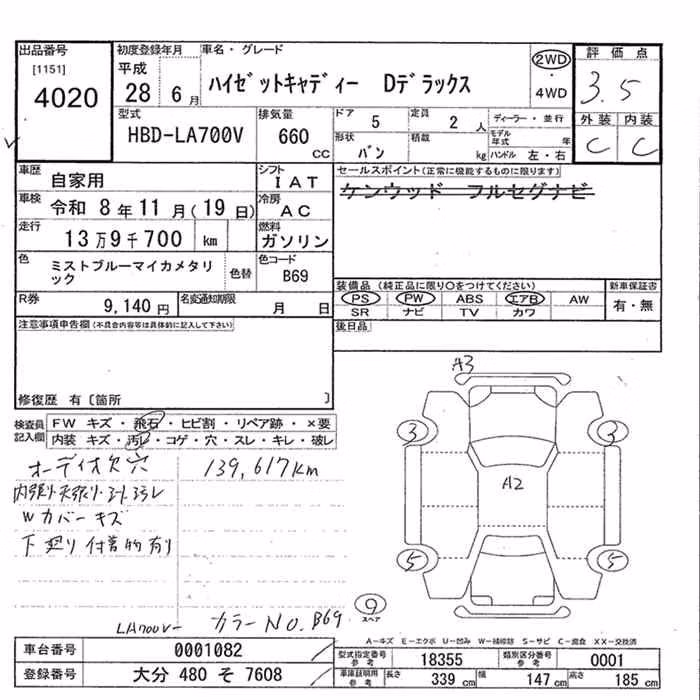 出品番号
[1151]
4020
初度登録年月
平成
28 6月
車名・グレード
ハイゼットキャディー Dデラックス
2WD
・
4WD
評価点
3.5
外装 内装
C C
型式
HBD-LA700V
排気量
660
cc
ドア 5
定員 2 人
形状 バン
積載 kg
ディーラー・並行
モデル年式 年
ハンドル 左・右
車歴 自家用
シフト IAT
車検 令和 8年11月(19日)
冷房 AC
走行 13万9千700 km
燃料 ガソリン
色 ミストブルーマイカメタリック
色替
色コード B69
R券 9,140円
名変通知期限 月 日
セールスポイント(正常に機能するものに限ります)
ケンウッド フルセグナビ
装備品(純正品に限り○をつけてください)
PS PW ABS エアB AW
SR ナビ TV カワ
新車保証書
有・無
後日品
注意事項申告欄(不具合内容等は具体的に記入して下さい)
修復歴 有〔箇所 〕
検査員記入欄
FW キズ・飛石・ヒビ割・リペア跡・×要
内装 キズ・汚レ・コゲ・穴・スレ・キレ・破レ
オーディオ欠 穴
139,617km
内張り・天張り・
Wカバーキズ
下廻り付着物有り
LA700V-
カラーNO.B69
A3
3
3
A2
5
5
9
スペア
A－キズ E－エクボ U－凹み W－補修跡 S－サビ C－腐食 XX－交換済
車台番号 0001082
登録番号 大分 480 そ 7608
型式指定番号参考 18355
類別区分番号参考 0001
車庫証明用参考 長さ 339 cm 幅 147 cm 高さ 185 cm